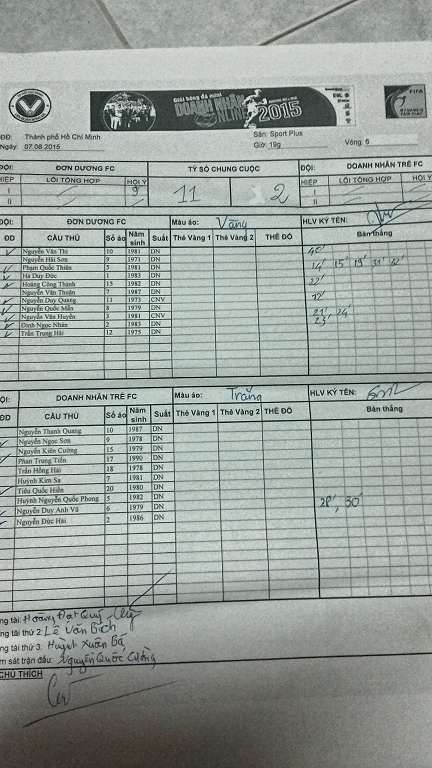 Giải bóng đá mini
DOANH NHÂN
2015
FIFA
MY GAME IS
FAIR PLAY
ĐĐ: Thành phố Hồ Chí Minh Sân: Sport Plus
Ngày: 07.08.2015 Giờ: 19g Vòng: 6
ĐỘI: ĐƠN DƯƠNG FC TỶ SỐ CHUNG CUỘC ĐỘI: DOANH NHÂN TRẺ FC
HIỆP LỖI TỔNG HỢP HỘI Ý HIỆP LỖI TỔNG HỢP HỘI Ý
I 9' 11 2 I
II II
ĐỘI: ĐƠN DƯƠNG FC Màu áo: Vàng HLV KÝ TÊN:
ĐD CẦU THỦ Số áo Năm sinh Suất Thẻ Vàng 1 Thẻ Vàng 2 THẺ ĐỎ Bàn thắng
Nguyễn Văn Thi 10 1981 DN 40'
Nguyễn Hải Sơn 9 1971 DN
Phạm Quốc Thiên 5 1981 DN 14' 15' 19' 31'
Hà Duy Đức 1 1983 DN
Hoàng Công Thành 15 1982 DN 22'
Nguyễn Văn Thuận 7 1987 DN
Nguyễn Duy Quang 11 1973 CNV 12'
Nguyễn Quốc Mẫn 8 1979 DN 21' 24'
Nguyễn Văn Huyền 3 1981 CNV 23'
Đinh Ngọc Nhân 2 1983 DN
Trần Trọng Hải 12 1975 DN
ĐỘI: DOANH NHÂN TRẺ FC Màu áo: Trắng HLV KÝ TÊN:
ĐD CẦU THỦ Số áo Năm sinh Suất Thẻ Vàng 1 Thẻ Vàng 2 THẺ ĐỎ Bàn thắng
Nguyễn Thanh Quang 10 1987 DN
Nguyễn Ngọc Sơn 9 1978 DN
Nguyễn Kiên Cường 15 1979 DN
Phan Trung Tiến 17 1990 DN
Trần Hồng Hải 18 1978 DN
Huỳnh Kim Sa 7 1981 DN
Tiêu Quốc Hiền 20 1980 DN
Huỳnh Nguyễn Quốc Phong 5 1982 DN 28', 30'
Nguyễn Duy Anh Vũ 6 1979 DN
Nguyễn Đức Hải 2 1986 DN
ng tài: Hoàng Đạt Quý
ng tài thứ 2: Lê Văn Bích
ng tài thứ 3. Huỳnh Xuân Bá
m sát trận đấu: Nguyễn Quốc Cường
CHÚ THÍCH